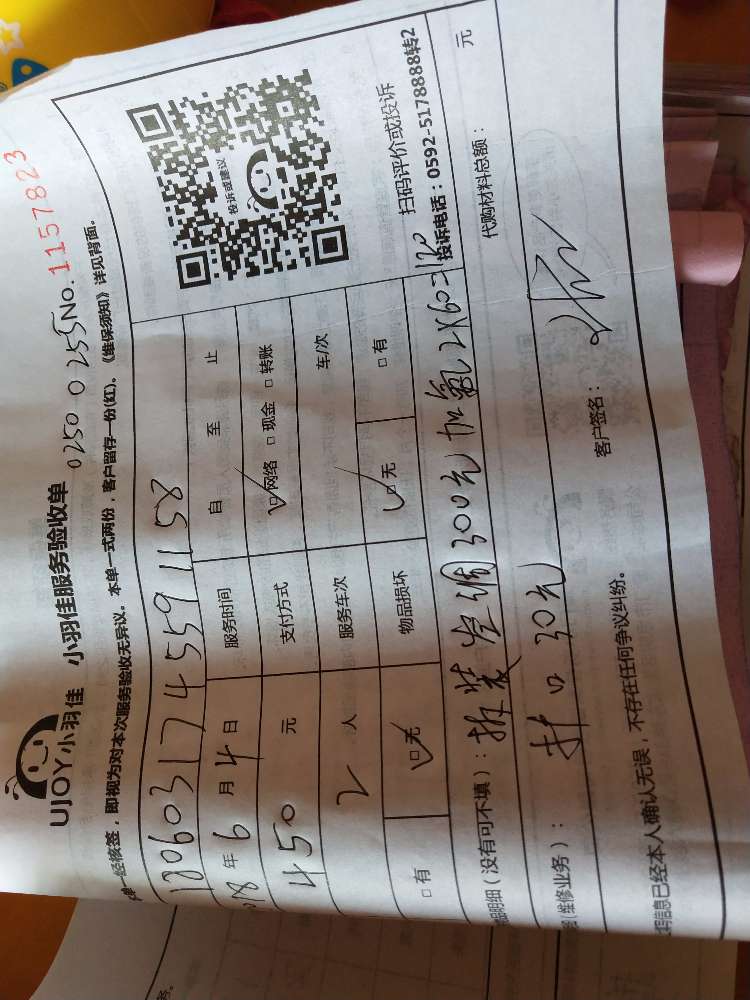 UJOY小羽佳 小羽佳服务验收单 0250 0255 No.1157823
一经核签，即视为对本次服务验收无异议。本单一式两份，客户留存一份(红)。《维保须知》详见背面。
1806031745591158
18年6月4日 服务时间 自 至 止
450 元 支付方式 ☑网络 □现金 □转账
2 人 服务车次 车/次
□有 ☑无 物品损坏 ☑无 □有
投诉或建议
扫码评价或投诉
投诉电话：0592-5178888转2
明细（没有可不填）：拆装空调300元加氧2×60=120
(维修业务)： 折口 30元 代购材料总额： 元
信息已经本人确认无误，不存在任何争议纠纷。 客户签名：